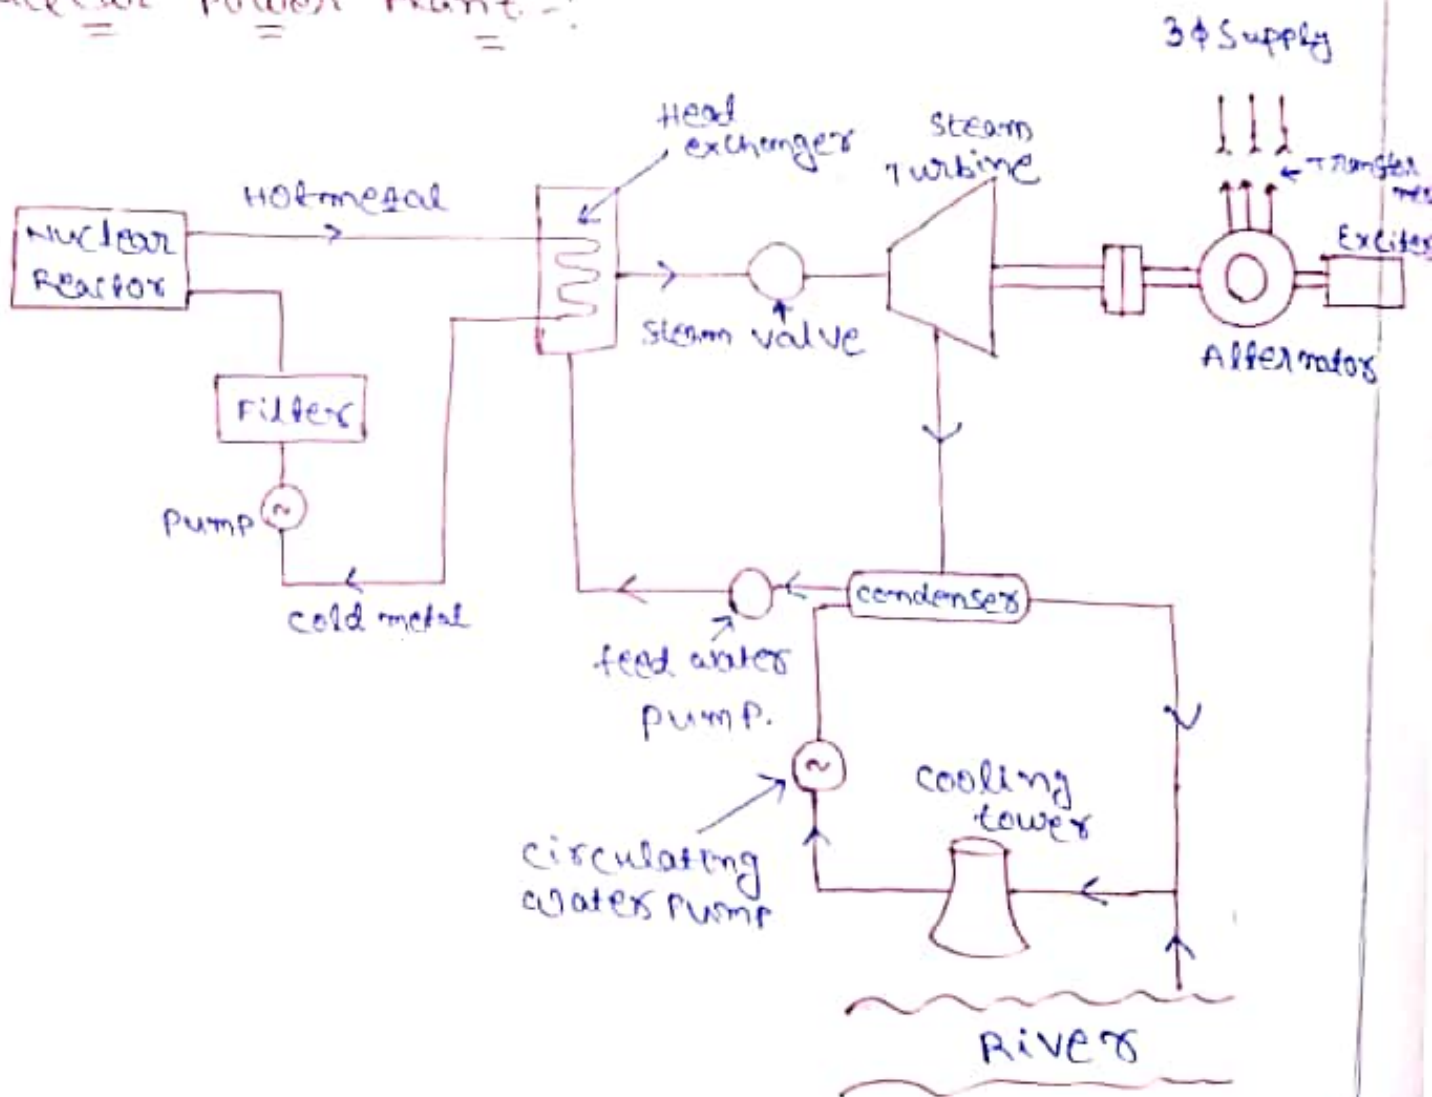 Power Plant-:
3φ Supply
Head
exchanger
Steam
Turbine
Hot metal
Nuclear
Reactor
Exciter
Steam valve
Alternator
Filter
Pump
condenser
cold metal
feed water
pump.
cooling
tower
circulating
water pump
River